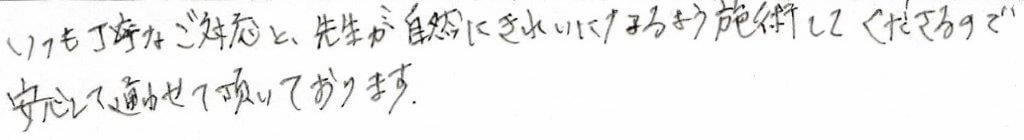 いつも丁寧なご対応と、先生が自然にきれいになるよう施術してくださるので
安心して通わせて頂いております.